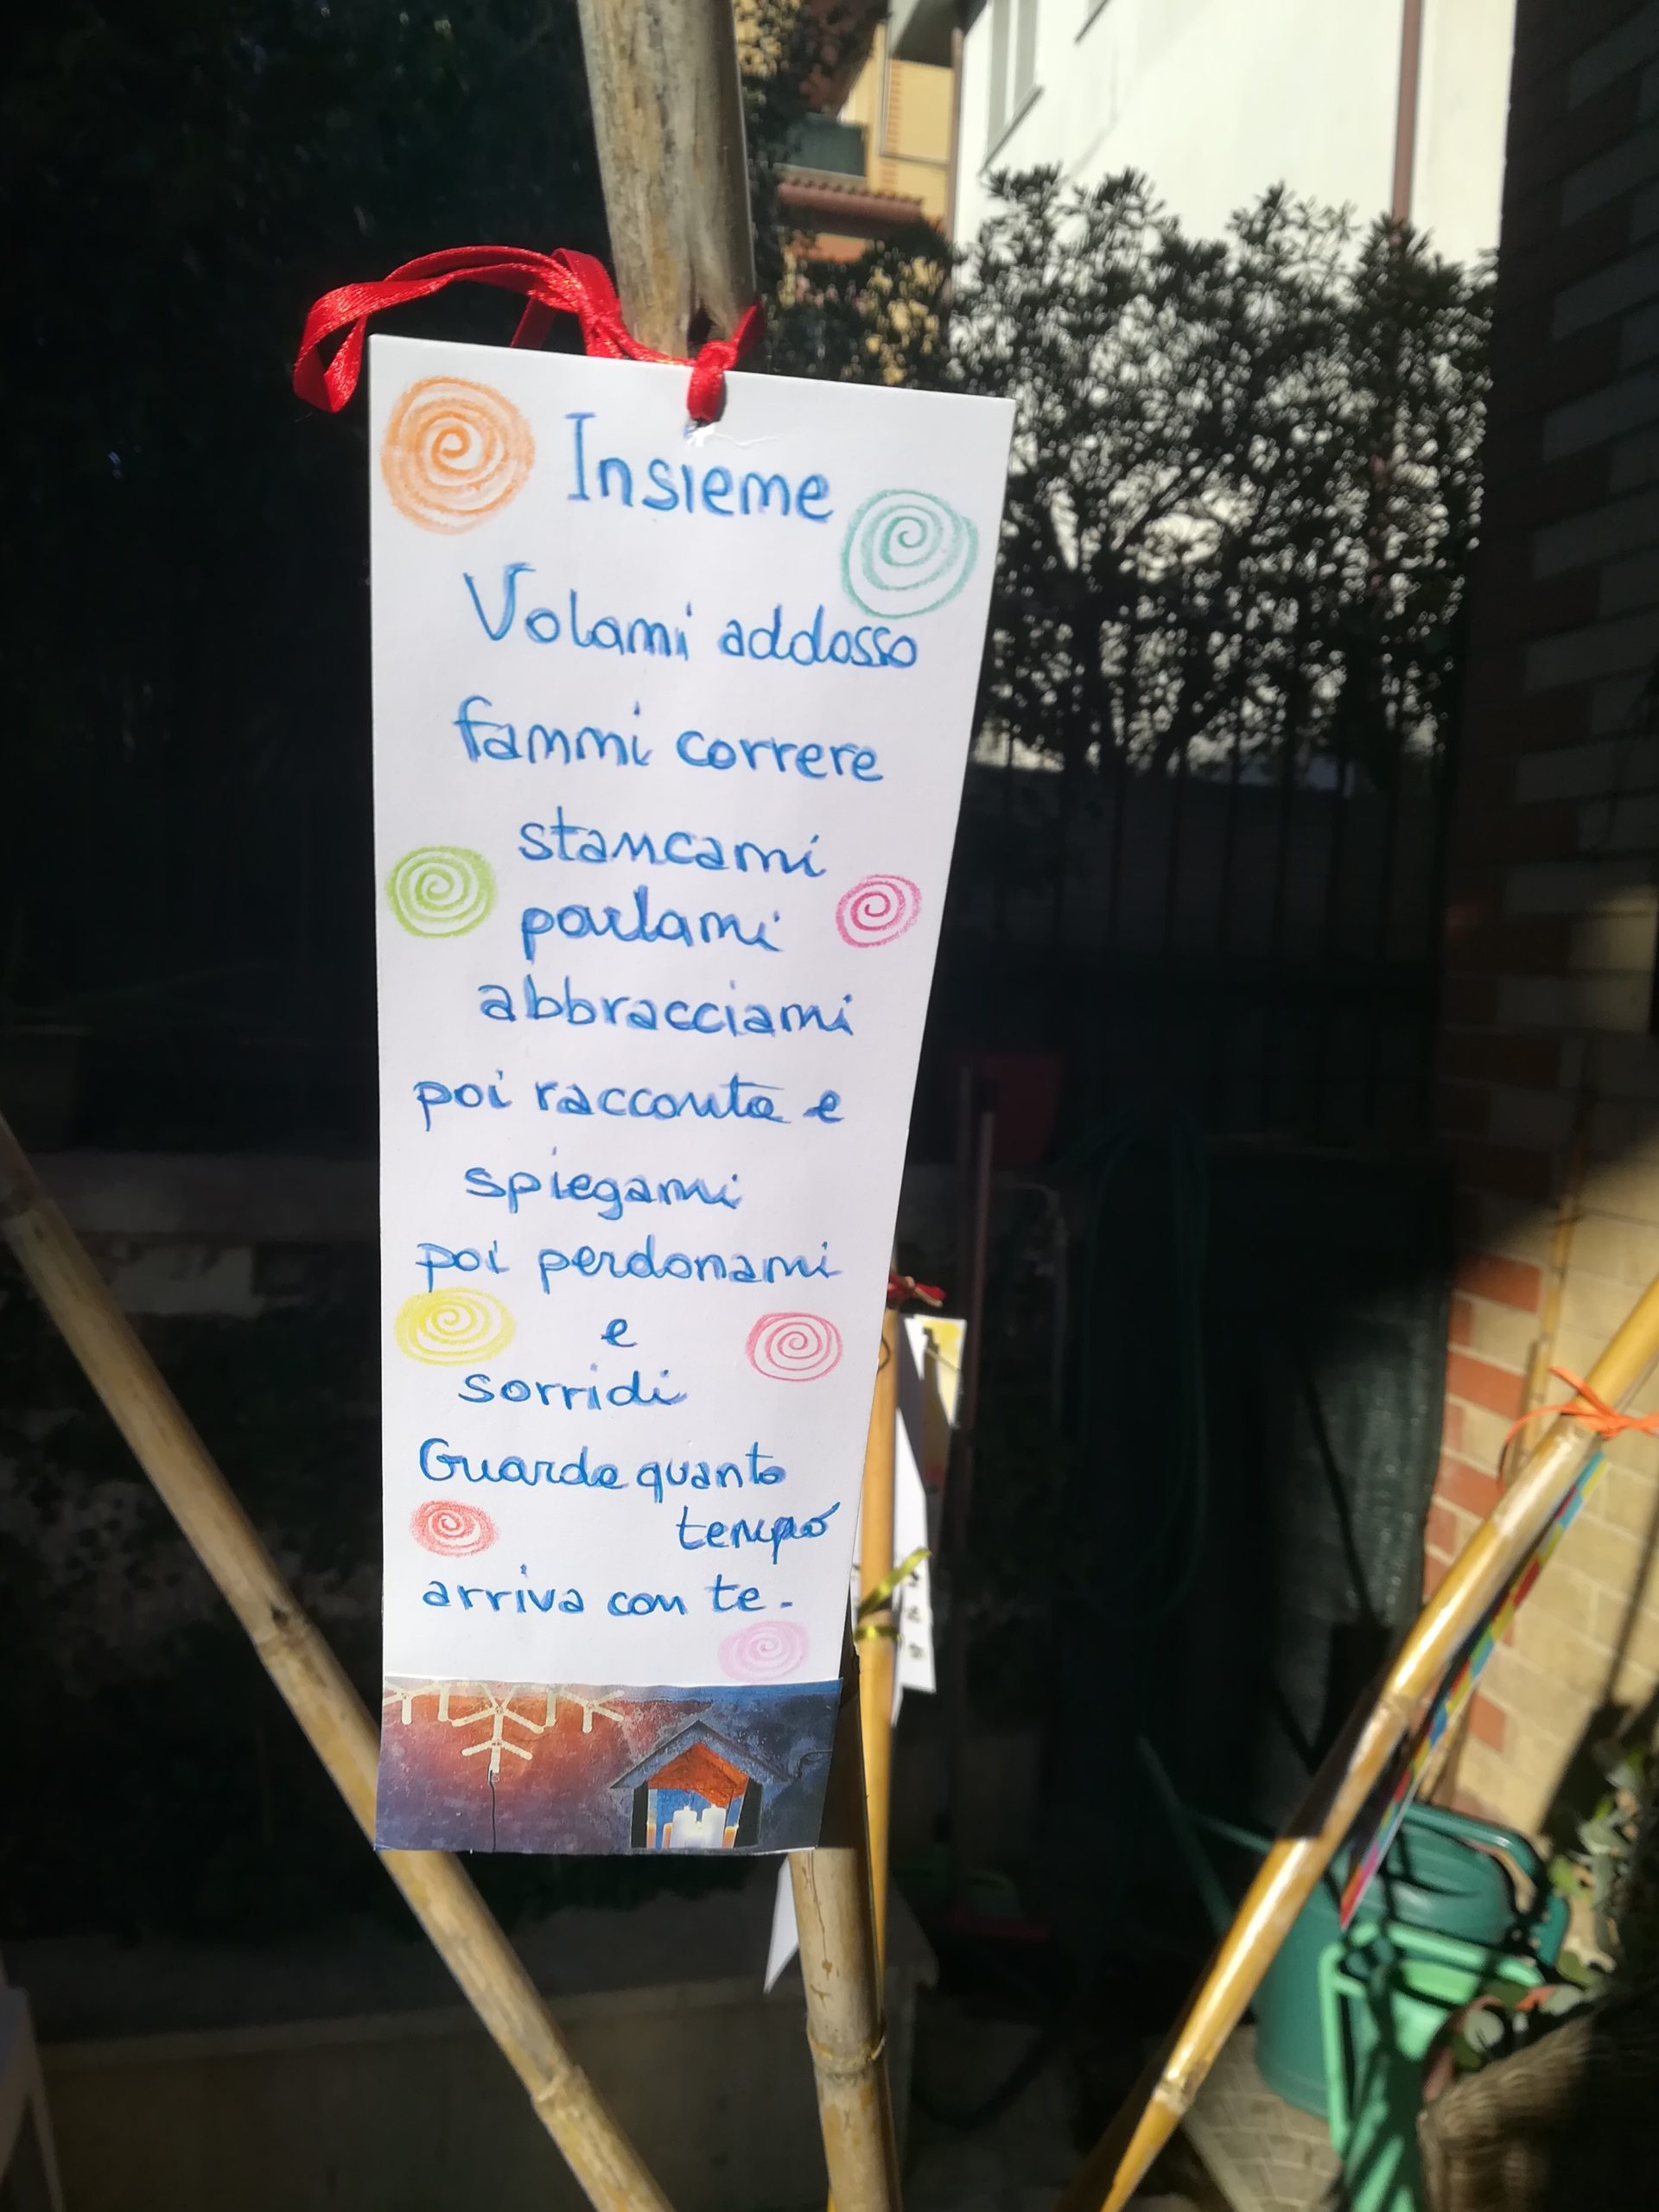 Insieme
Volami addosso
fammi correre
stancami
parlami
abbracciami
poi racconta e
spiegami
poi perdonami
e
sorridi
Guarda quanto
tempo
arriva con te.